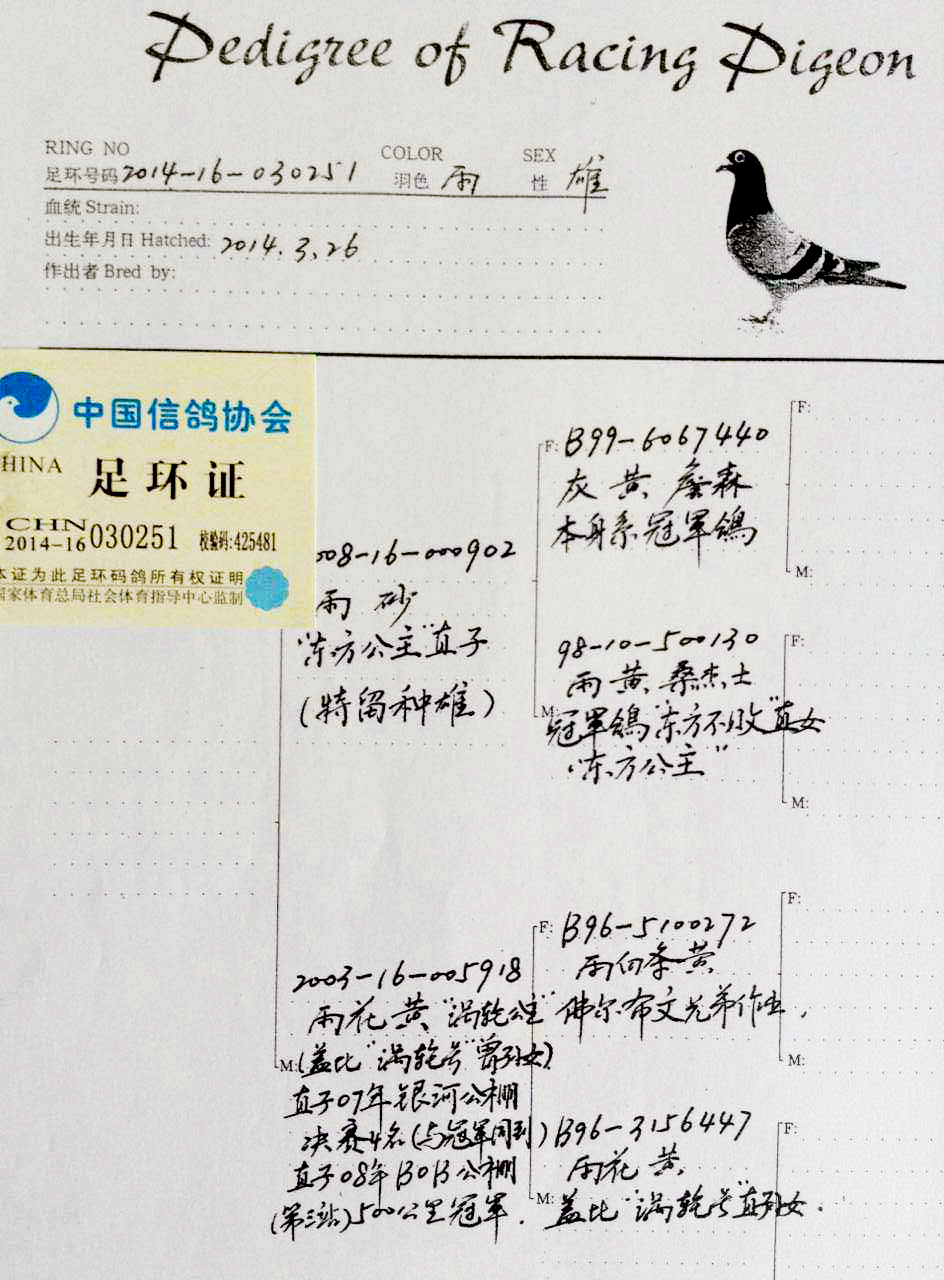 Pedigree of Racing Pigeon
RING NO
足环号码 2014-16-030251
COLOR
羽色 雨
SEX
性 雄
血统 Strain:
出生年月日 Hatched: 2014.3.26
作出者 Bred by:
中国信鸽协会
HINA 足环证
CHN
2014-16 030251 校验码:425481
本证为此足环码鸽所有权证明
国家体育总局社会体育指导中心监制
008-16-000902
雨 砂
"东方公主"直子
(特留种雄)
F: B99-6067440
灰 黄 詹森
本身系冠军鸽
F:
M:
98-10-500130
雨 黄 桑杰士
M: 冠军鸽"东方不败"直女
"东方公主"
F:
M:
2003-16-005918
雨花 黄 "涡轮公主"
M: (盖比"涡轮号"曾孙女)
直子07年银河公棚
决赛4名(与冠军同到)
直子08年BOB公棚
(第三站)500公里冠军.
F: B96-5100272
雨白条 黄
佛尔布文兄弟作出.
F:
M:
B96-3156447
雨花 黄
M: 盖比"涡轮号"直孙女.
F: